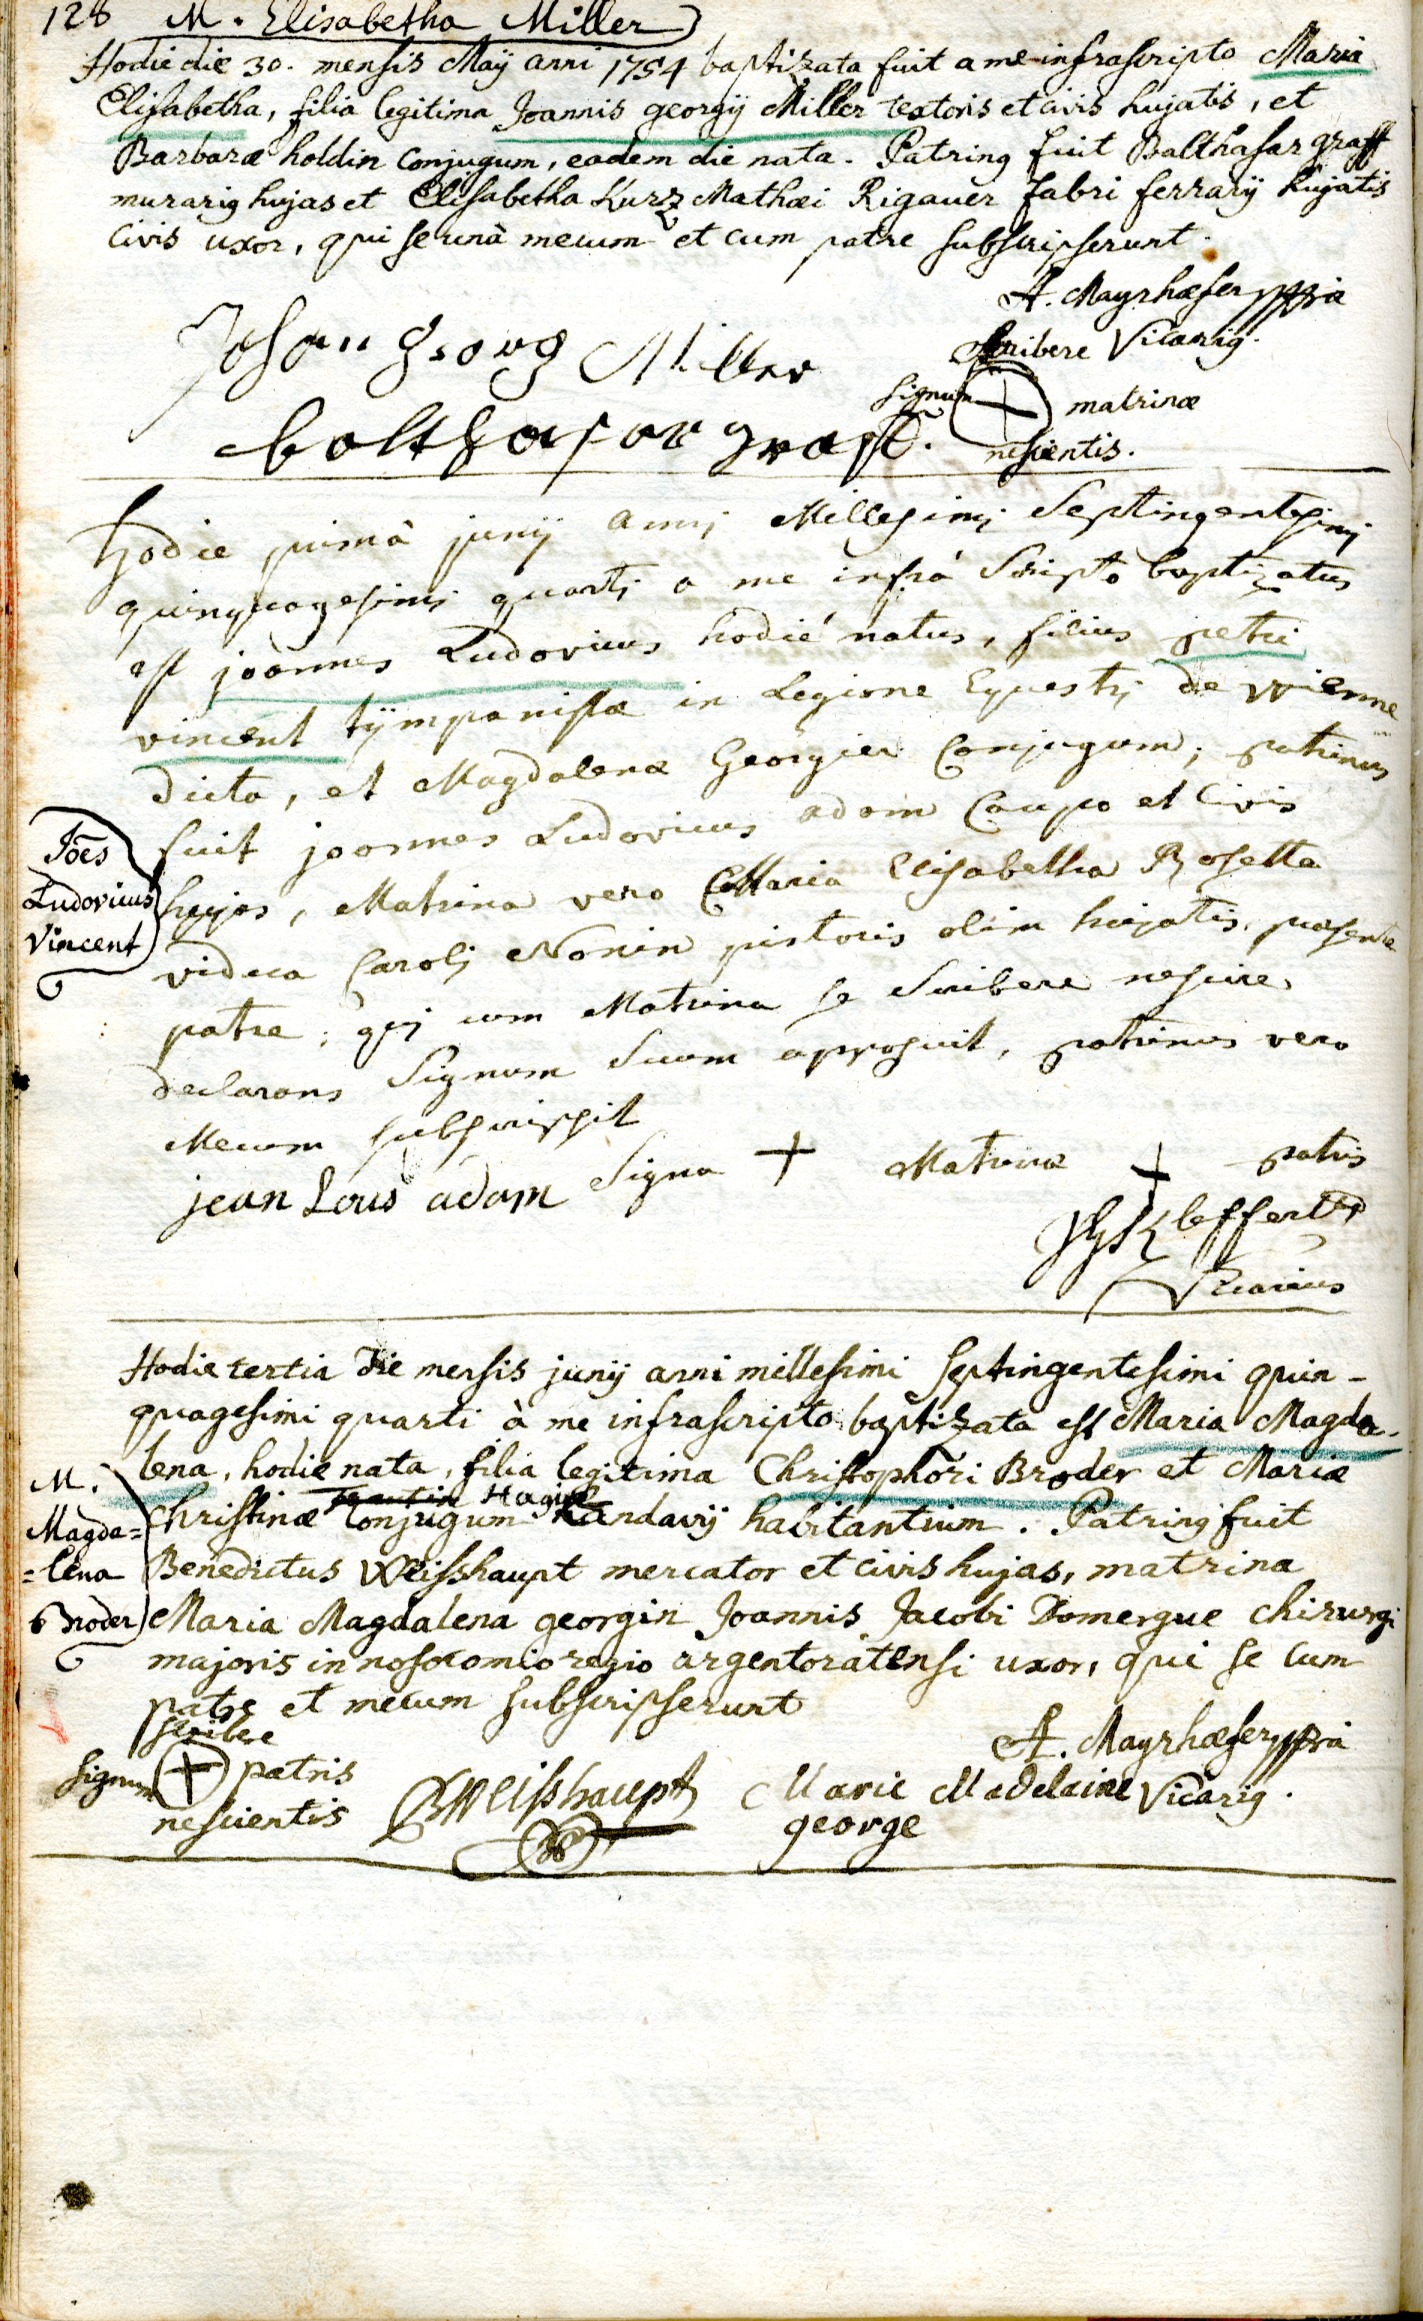 128 M. Elisabetha Miller
Hodie die 30. mensis Maÿ anni 1754 baptizata fuit a me infrascripto Maria
Elisabetha, filia legitima Joannis georgÿ Miller textoris et civis hujatis, et
Barbaræ holdin Conjugum, eadem die nata. Patrinq fuit Balthasar graff
murariq hujas et Elisabetha Kurz Mathæi Rigauer fabri ferrarÿ hujatis
Civis uxor, qui se unà mecum et cum patre subscripserunt.
A. Mayrhæfer ppria
Vicariq.
Johan Georg Miller
scribere
signum + matrinæ
nescientis.
balthasar graff.
hodie primà junÿ annj Millesimj Septingentesimj
quinquagesimj quartj a me infrà Scripto baptizatus
est joannes Ludovicus hodié natus, filius petri
vincent tÿmpanistæ in Legione Equestrj de vienne
dicta, et Magdalenæ Georgier Conjugum; patrinus
fuit joannes Ludovicus adam Caupo et Civis
hujas, Matrina vero Maria Elisabetha Rosetta
vidua Carolj Nonin pistoris olim hujatis, præsente
patre; quj cum Matrina se Scribere nescire
declarans Signum Suum apposuit, patrinus vero
Mecum subscripsit
Joēs
Ludovicus
Vincent
Signa + Matrinæ + patris
jean Louis adam
Kleffert
Vicarius
Hodie tertia die mensis junÿ anni millesimi septingentesimi quin-
quagesimi quarti à me infrascripto baptizata est Maria Magda-
lena, hodie nata, filia legitima Christophori Broder et Mariæ
Hagin
Christinæ Conjugum Landavÿ habitantium. Patrinq fuit
Benedictus Weisshaupt mercator et civis hujas, matrina
Maria Magdalena georgin Joannis Jacobi Domergue chirurgi
majoris in nosocomio regio argentoratensi uxor, qui se cum
patre et mecum subscripserunt
M.
Magda=
=lena
Broder
scribere
signum + patris
nescientis
BWeisshaupt
Marie Madelaine
george
A. Mayrhæfer ppria
Vicariq.